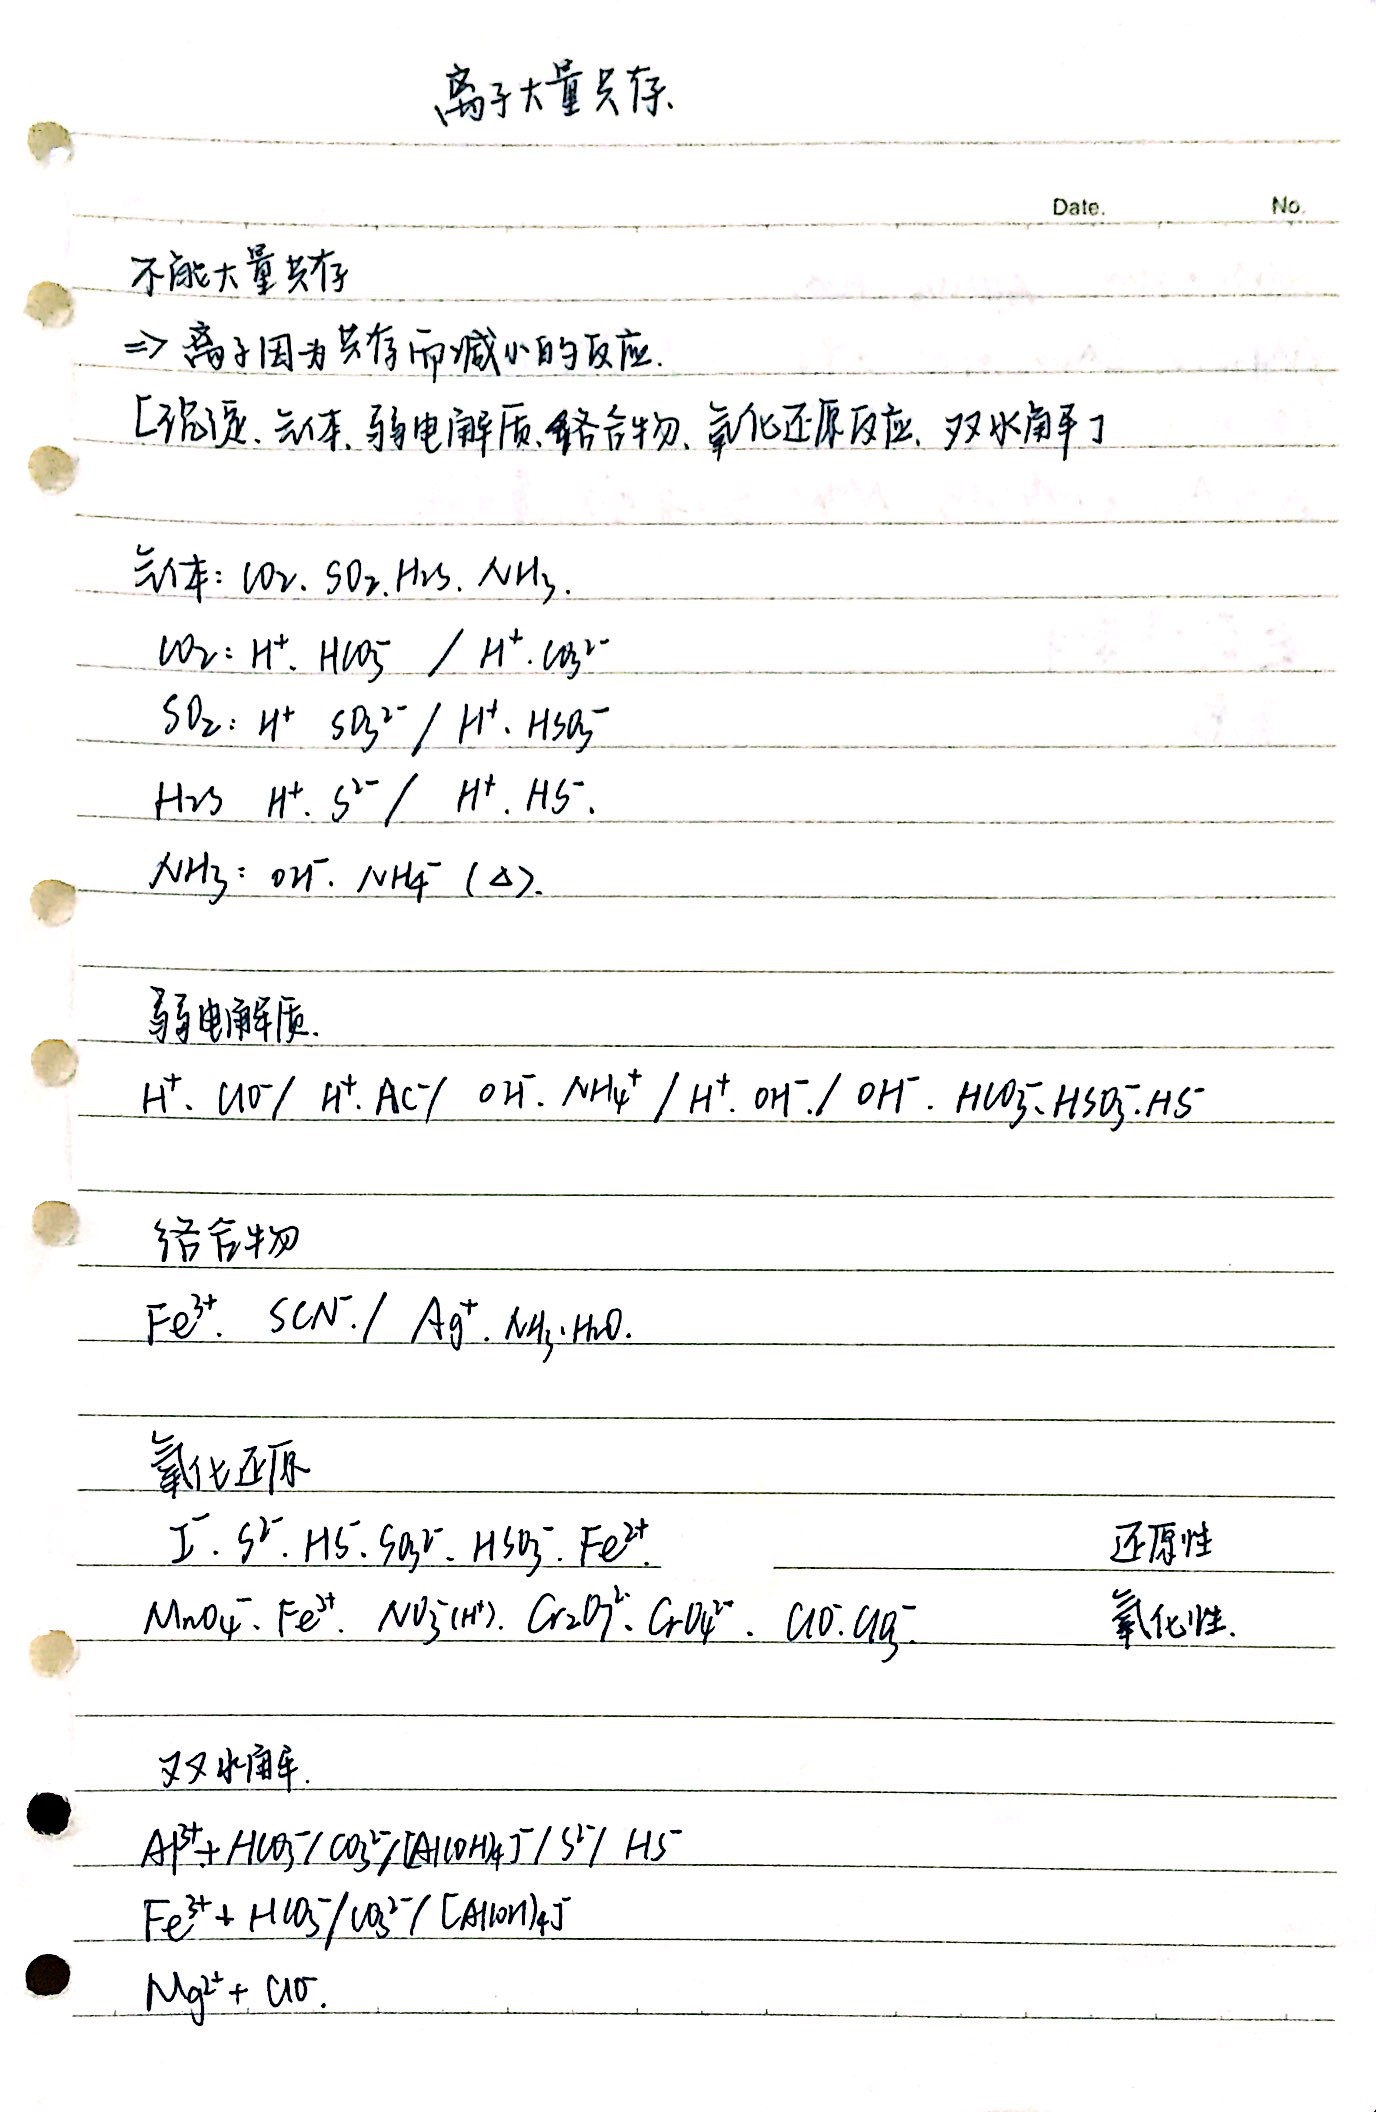 离子大量共存.
Date. No.
不能大量共存
=> 离子因为共存而减小的反应.
[沉淀、气体、弱电解质、络合物、氧化还原反应、双水解]
气体: CO₂. SO₂. H₂S. NH₃.
CO₂: H⁺. HCO₃⁻ / H⁺. CO₃²⁻
SO₂: H⁺ SO₃²⁻ / H⁺. HSO₃⁻
H₂S H⁺. S²⁻ / H⁺. HS⁻.
NH₃: OH⁻. NH₄⁻ (△).
弱电解质.
H⁺. ClO⁻ / H⁺. AC⁻ / OH⁻. NH₄⁺ / H⁺. OH⁻. / OH⁻. HCO₃⁻. HSO₃⁻. HS⁻
络合物
Fe³⁺. SCN⁻. / Ag⁺. NH₃·H₂O.
氧化还原
I⁻. S²⁻. HS⁻. SO₃²⁻. HSO₃⁻. Fe²⁺. 还原性
MnO₄⁻. Fe³⁺. NO₃⁻(H⁺). Cr₂O₇²⁻. CrO₄²⁻. ClO⁻. ClO₃⁻. 氧化性.
双水解.
Al³⁺ + HCO₃⁻ / CO₃²⁻ / [Al(OH)₄]⁻ / S²⁻ / HS⁻
Fe³⁺ + HCO₃⁻ / CO₃²⁻ / [Al(OH)₄]⁻
Mg²⁺ + ClO⁻.